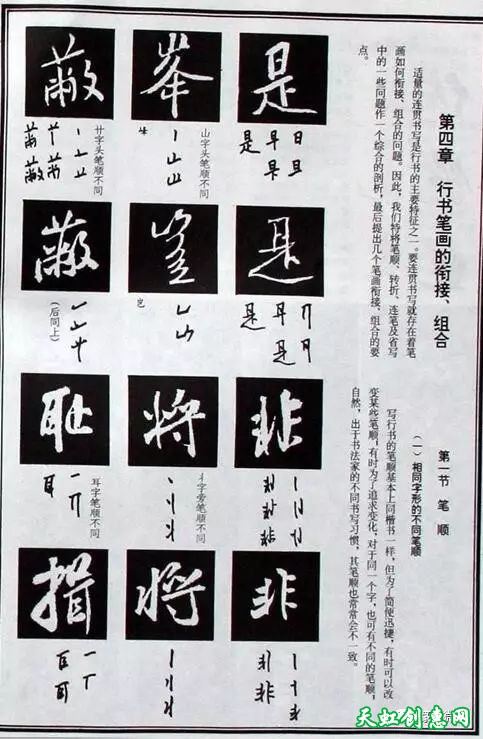 第四章 行书笔画的衔接、组合
适量的连贯书写是行书的主要特征之一。要连贯书写就存在着笔
画如何衔接、组合的问题。因此，我们特将笔顺、转折、连笔及省写
中的一些问题作一个综合的剖析，最后提出几个笔画衔接、组合的要
点。
第一节 笔 顺
(一)相同字形的不同笔顺
写行书的笔顺基本上同楷书一样，但为了简便迅捷，有时可以改
变某些笔顺，有时为了追求变化，对于同一个字，也可有不同的笔顺，
自然，出于书法家的不同书写习惯，其笔顺也常常会不一致。
是
是
非
非
山字头笔顺不同
峯
豈
丬字旁笔顺不同
将
将
廿字头笔顺不同
蔽
蔽
(后同上)
耳字笔顺不同
耻
揖
天虹创意网